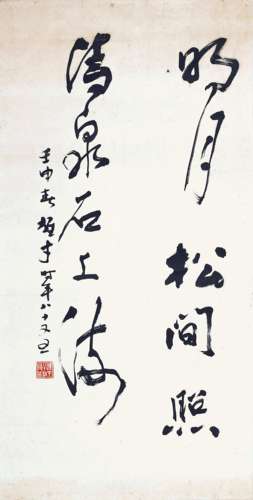 明月松间照
清泉石上流
壬申春 超 时年八十又五